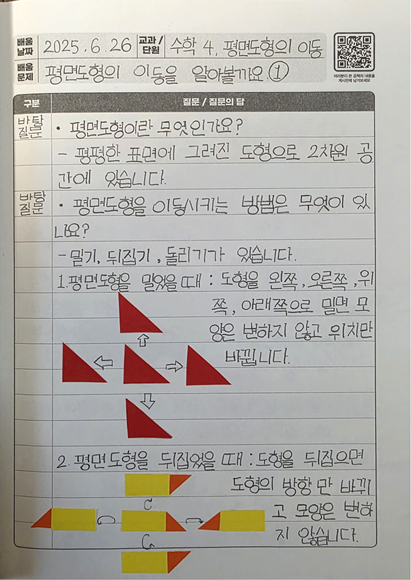 배움 날짜 2025. 6. 26 교과/단원 수학 4. 평면도형의 이동
배움 문제 평면도형의 이동을 알아볼까요 ①
구분 질문 / 질문의 답
바탕 질문 · 평면도형이란 무엇인가요?
- 평평한 표면에 그려진 도형으로 2차원 공
간에 있습니다.
바탕 질문 · 평면도형을 이동시키는 방법은 무엇이 있
나요?
- 밀기, 뒤집기, 돌리기가 있습니다.
1. 평면도형을 밀었을 때 : 도형을 왼쪽, 오른쪽, 위
쪽, 아래쪽으로 밀면 모
양은 변하지 않고 위치만
바뀝니다.
2. 평면도형을 뒤집었을 때 : 도형을 뒤집으면
도형의 방향만 바뀌
고 모양은 변하
지 않습니다.